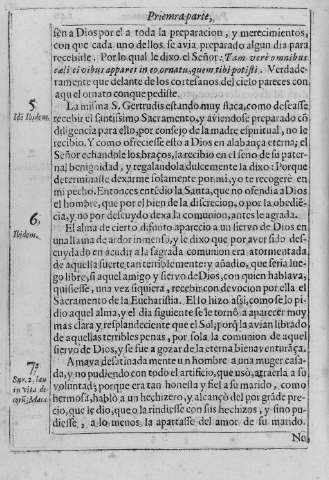 Priemra parte,
sen a Dios por el a toda la preparacion, y merecimientos,
con que cada uno dellos se avia preparado algun dia para
recebirle. Por lo qual le dixo el Señor: Tam verè omnibus
cæli civibus appares in eo ornatu, quem tibi petisti. Verdade-
ramente que delante de los cortesanos del cielo pareces con
aquel ornato que pediste.
5
Idẽ Ibidem.
La misma S. Gertrudis estando muy flaca, como desease
recebir el santissimo Sacramento, y aviendose preparado cõ
diligencia para ello, por consejo de la madre espiritual, no le
recibio. Y como ofreciesse esto a Dios en alabança eterna, el
Señor echandole los braços, la recibio en el seno de su pater-
nal benignidad, y regalandola dulcemente la dixo: Porque
determinaste dexarme solamente por mi, yo te recogere en
mi pecho. Entonces entẽdio la Santa, que no ofendia a Dios
el hombre, que por el bien de la discrecion, o por la obediẽ-
cia, y no por descuydo dexa la comunion, antes le agrada.
6,
Ibidem.
El alma de cierto difunto aparecio a un siervo de Dios en
una llama de ardor inmenso, y le dixo que por aver sido des-
cuydado en acudir a la sagrada comunion era atormentada
de aquella suerte tan terriblemente: y añadio, que seria lue-
go libre, si aquel amigo y siervo de Dios, con quien hablava,
quisiesse, una vez siquiera, recebir con devocion por ella el
Sacramento de la Eucharistia. El lo hizo assi, como se lo pi-
dio aquel alma, y el dia siguiente se le tornò a aparecer muy
mas clara y resplandeciente que el Sol; porq̃ la avian librado
de aquellas terribles penas, por sola la comunion de aquel
siervo de Dios, y se fue a gozar de la eterna bienventurãça.
7.
Sur. 2. Ian
in vita
Amava desatinadamente un hombre a una muger casa-
da, y no pudiendo con todo el artificio, que usò, atraerla a su
voluntad; porque era tan honesta y fiel a su marido, como
hermosa, hablò a un hechizero, y alcançò del por grãde pre-
cio, que le dio, que o la rindiesse con sus hechizos, y sino pu-
diesse, a lo menos la apartasse del amor de su marido.
No